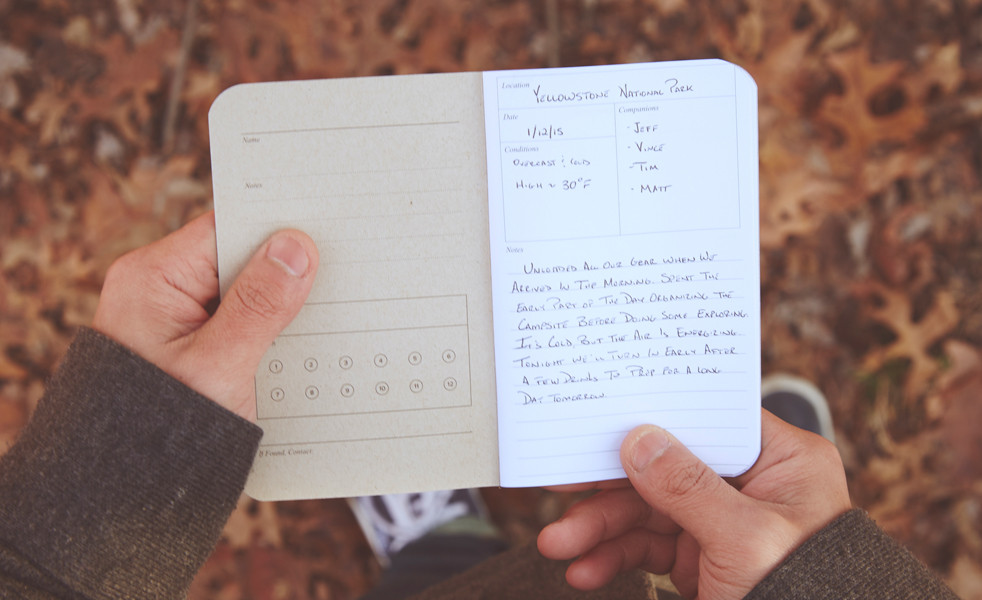 Name
Notes
1 2 3 4 5 6
7 8 9 10 11 12
If Found, Contact:
Location
YELLOWSTONE NATIONAL PARK
Date
1/12/15
Conditions
OVERCAST & COLD
HIGH ~ 30°F
Companions
- JEFF
- VINCE
- TIM
- MATT
Notes
UNLOADED ALL OUR GEAR WHEN WE
ARRIVED IN THE MORNING. SPENT THE
EARLY PART OF THE DAY ORGANIZING THE
CAMPSITE BEFORE DOING SOME EXPLORING.
IT'S COLD, BUT THE AIR IS ENERGIZING.
TONIGHT WE'LL TURN IN EARLY AFTER
A FEW DRINKS TO PREP FOR A LONG
DAY TOMORROW.